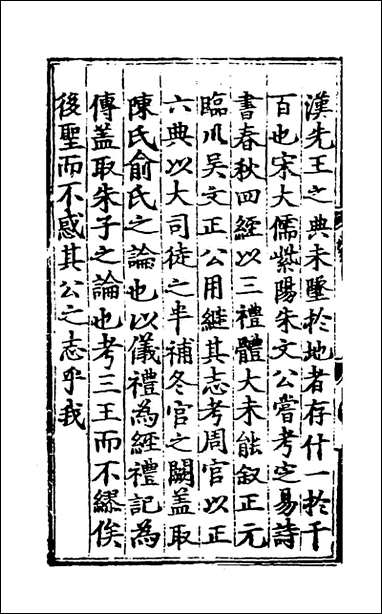 漢先王之典未墜於地者存什一於千
百也宋大儒紫陽朱文公嘗考定易詩
書春秋四經以三禮體大未能叙正元
臨川吳文正公用繼其志考周官以正
六典以大司徒之半補冬官之闕蓋取
陳氏俞氏之論也以儀禮為經禮記為
傳蓋取朱子之論也考三王而不繆俟
後聖而不惑其公之志乎我